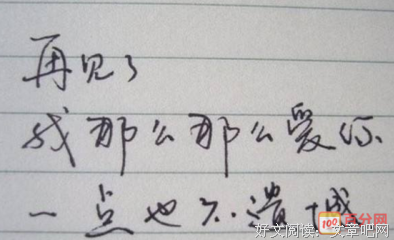 再见了
我那么那么爱你
一点也不遗憾
100百分网
好文阅读：文章吧网